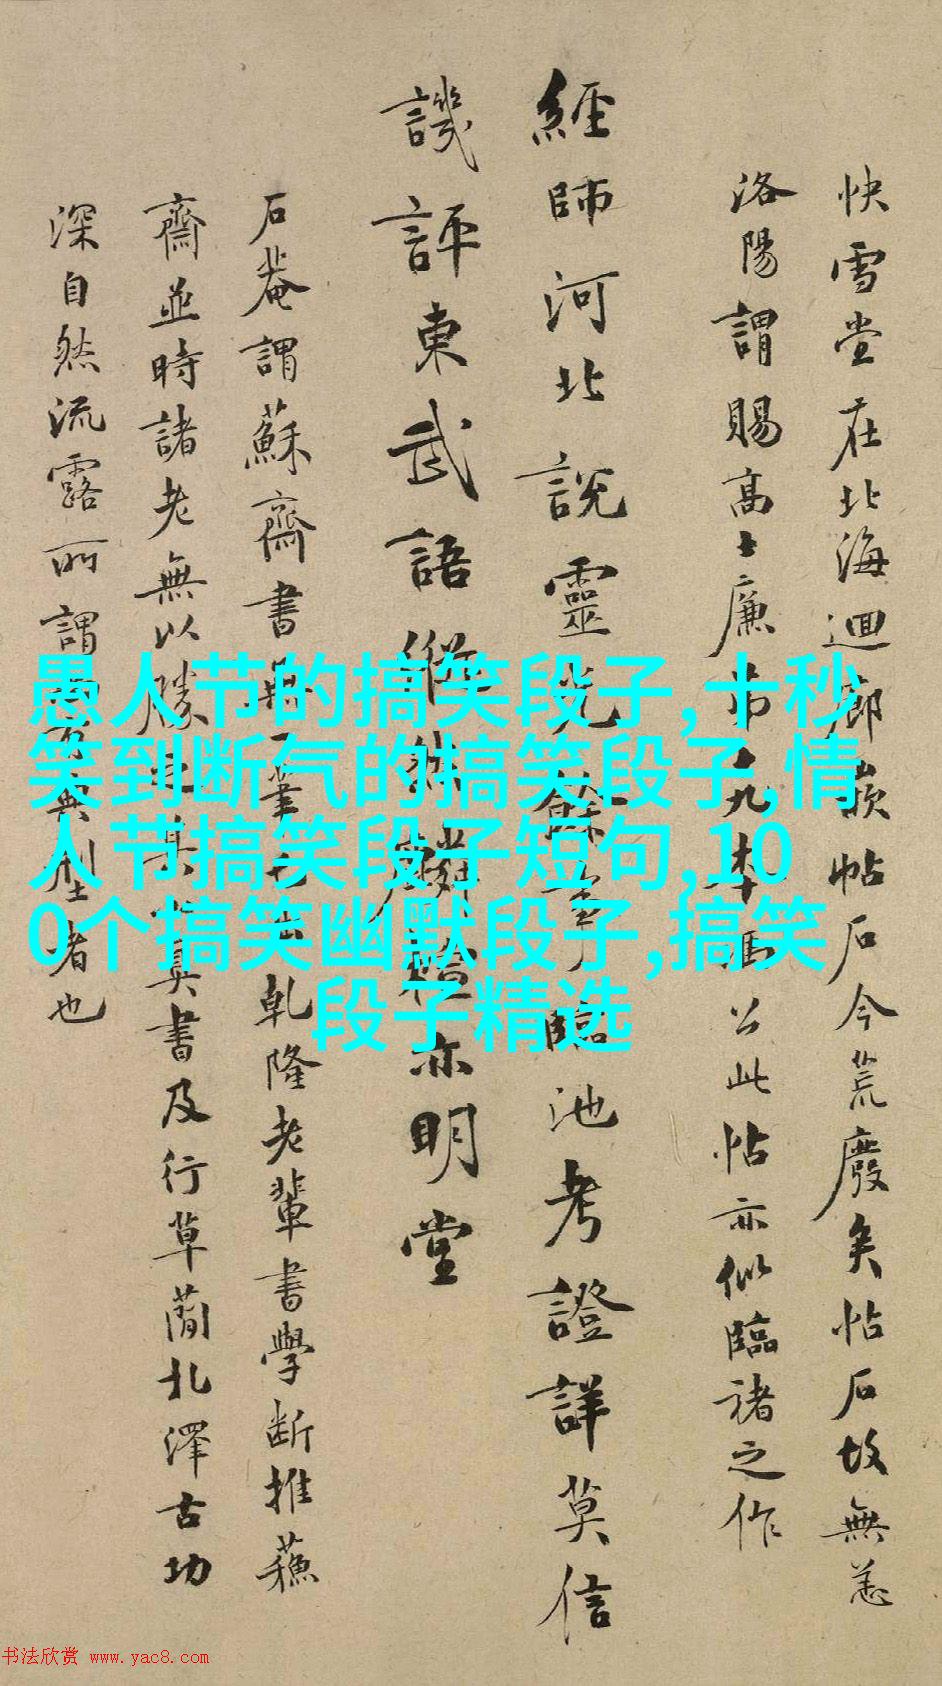 快雪堂在北海迴廊嵌帖石今荒廢矣帖石故無恙
洛陽謂賜高士廉第九本馮公此帖亦似臨褚之作
經師河北說靈光餘事臨池考證詳莫信
譏評東武語縱姝辯亦明堂
石菴謂蘇齋書無一筆乾隆老輩書學斷推蘓
齋並時諸老無以勝真書及行草蘭北澤古功
深自然流露所謂典型者也
愚人节的搞笑段子,十秒
笑到断气的搞笑段子,情
人节搞笑段子短句,10
0个搞笑幽默段子,搞笑
段子精选
书法欣赏 www.yac8.com